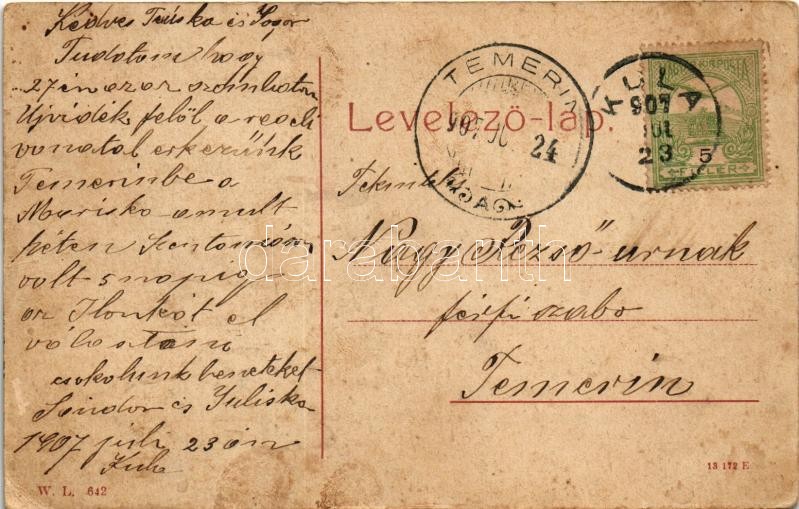 Kedves Teruska és Sogor
Tudatom hogy
27én azaz szombaton
Ujvidék felöl a regeli
vonatal erkezünk
Temerinbe a
Mariska a mult
héten Szentomáson
volt 5 napig
az Ilonkát el
választani
csokolunk beneteket
Sándor és Juliska
1907 juli 23 án
Kula
W. L. 642
TEMERIN
907 JUL 24
KULA
907
JUL
23 5
MAGYAR KIR. POSTA
FILLÉR
Levelező-lap.
Tekintetes
Nagy Rezső urnak
férfi szabo
Temerin
13 172 E
darabanth